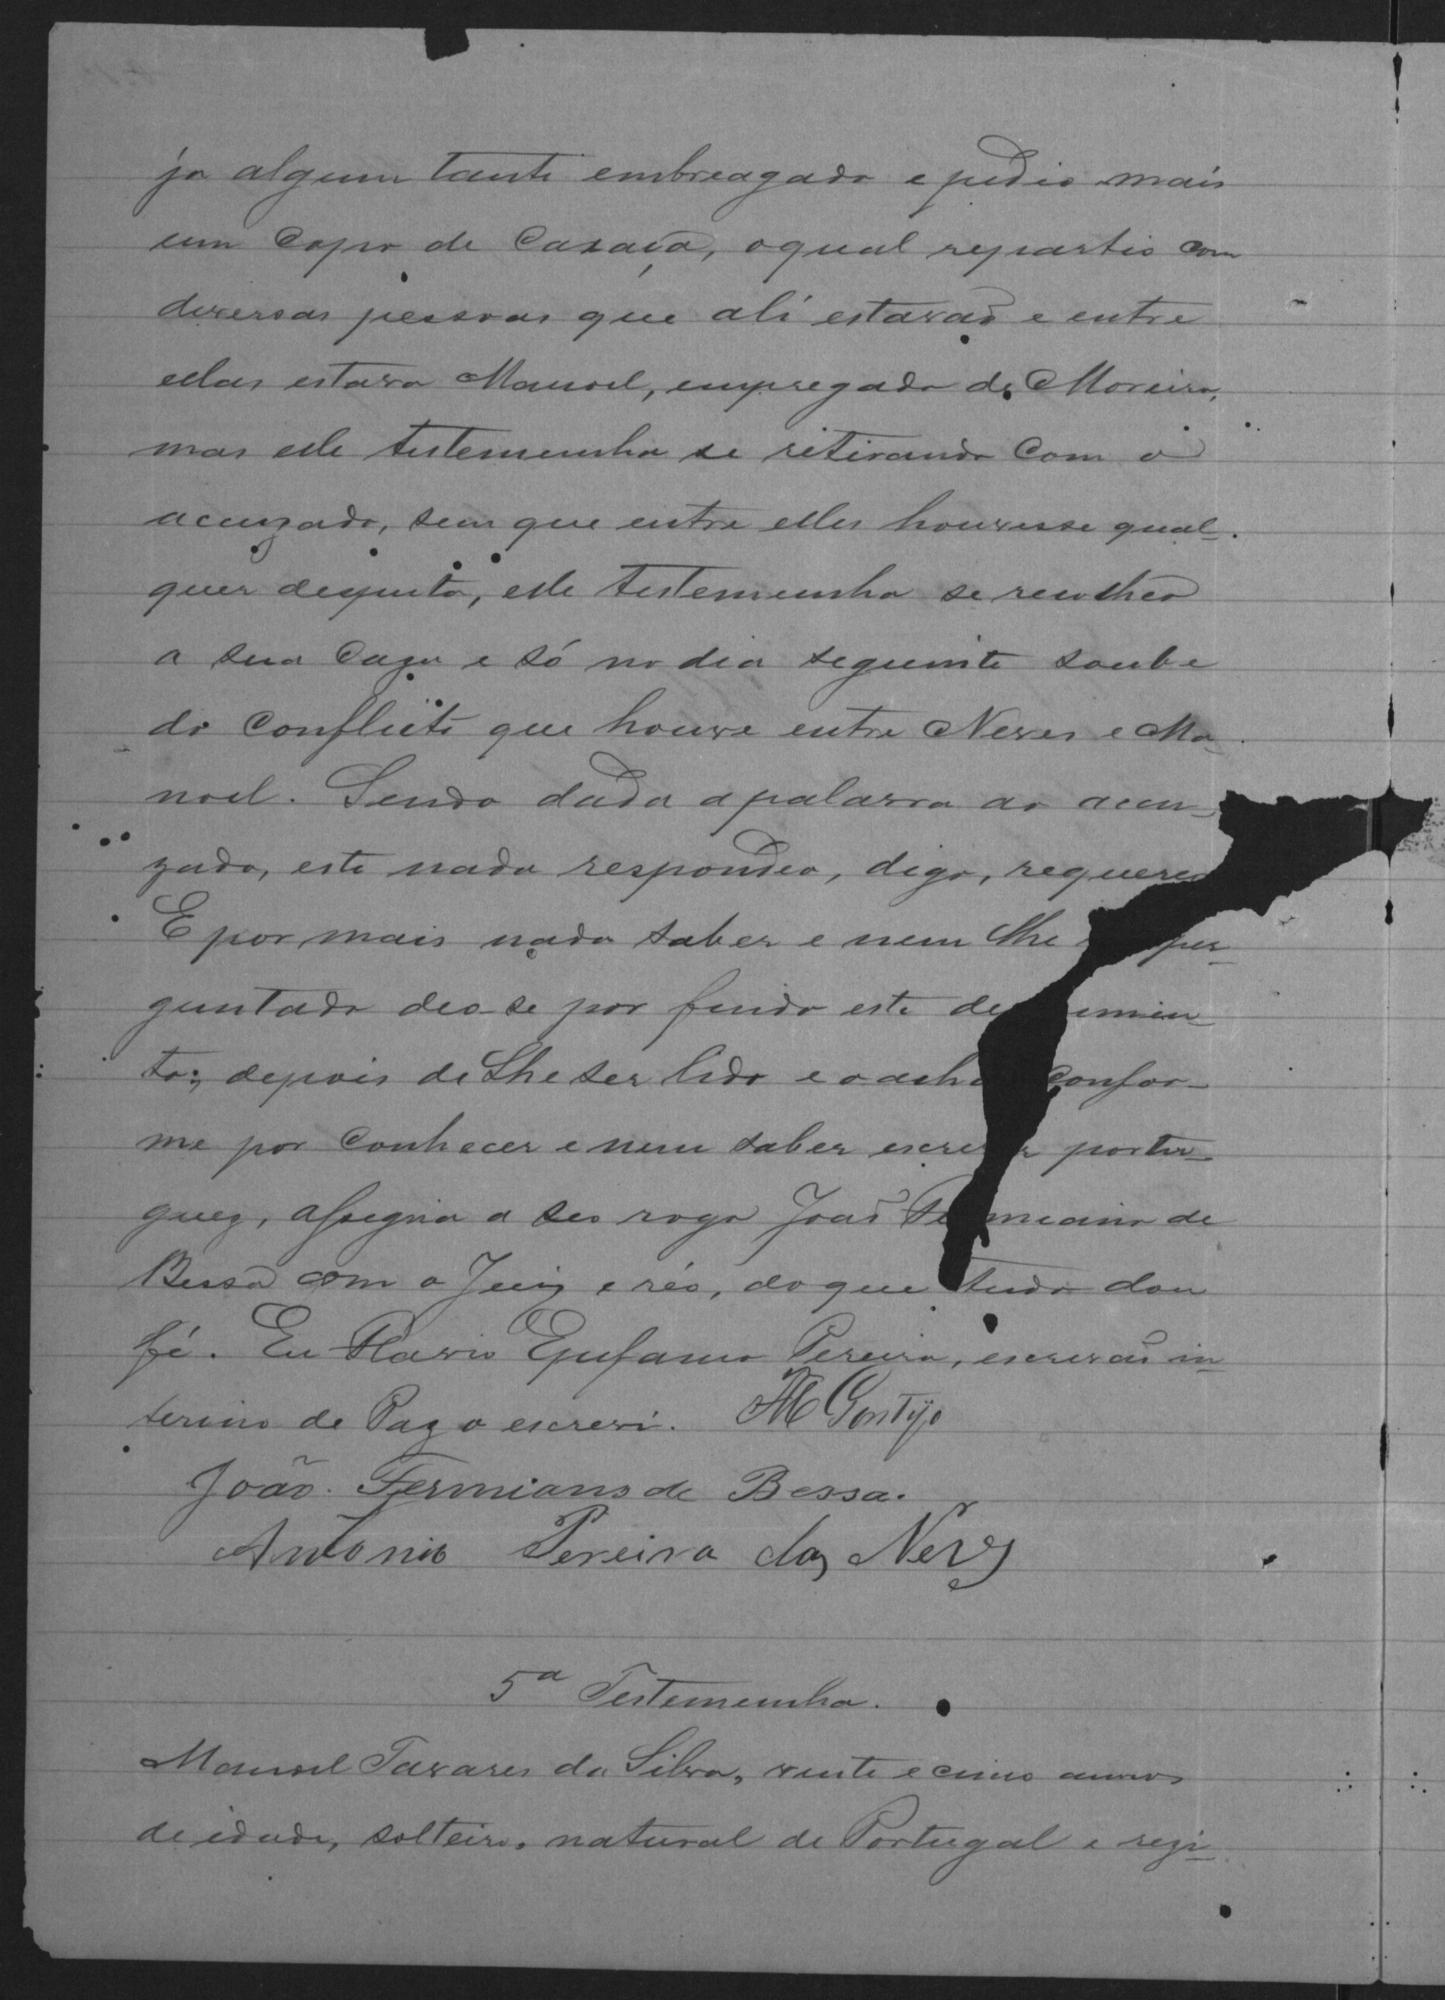 ja algum tanto embreagado e pedio mais
um Copo de Caxaça, o qual repartio com
diversas pessoas que ali estavaõ e entre
ellas estava Manoel, empregado de Moreira,
mas elle testemunha se retirando Com o
acuzado, sem que entre elles houvesse qual-
quer desputa, elle testemunha se recolheo
a sua Caza e só no dia seguinte soube
do Conflicto que houve entre Neves e Ma-
noel. Sendo dada a palavra ao acu-
zado, este nada respondeo, digo, requereo
E por mais nada saber e nem lhe per-
guntado deo-se por findo este de imen-
to; depois de lhe ser lido e o acha Confor-
me por Conhecer e nem saber escrever portu-
guez, assigna a seo rogo Joaõ Fermiano de
Bessa com o Juiz e réo, do que tudo dou
fé. Eu Flavio Epifanio Pereira, escrivaõ in-
terino de Paz o escrevi. Gontijo
João Fermiano de Bessa.
Antonio Pereira das Neves
5a Testemunha.
Manoel Tavares da Silva, vinte e cinco annos
de idade, solteiro, natural de Portugal e rezi-